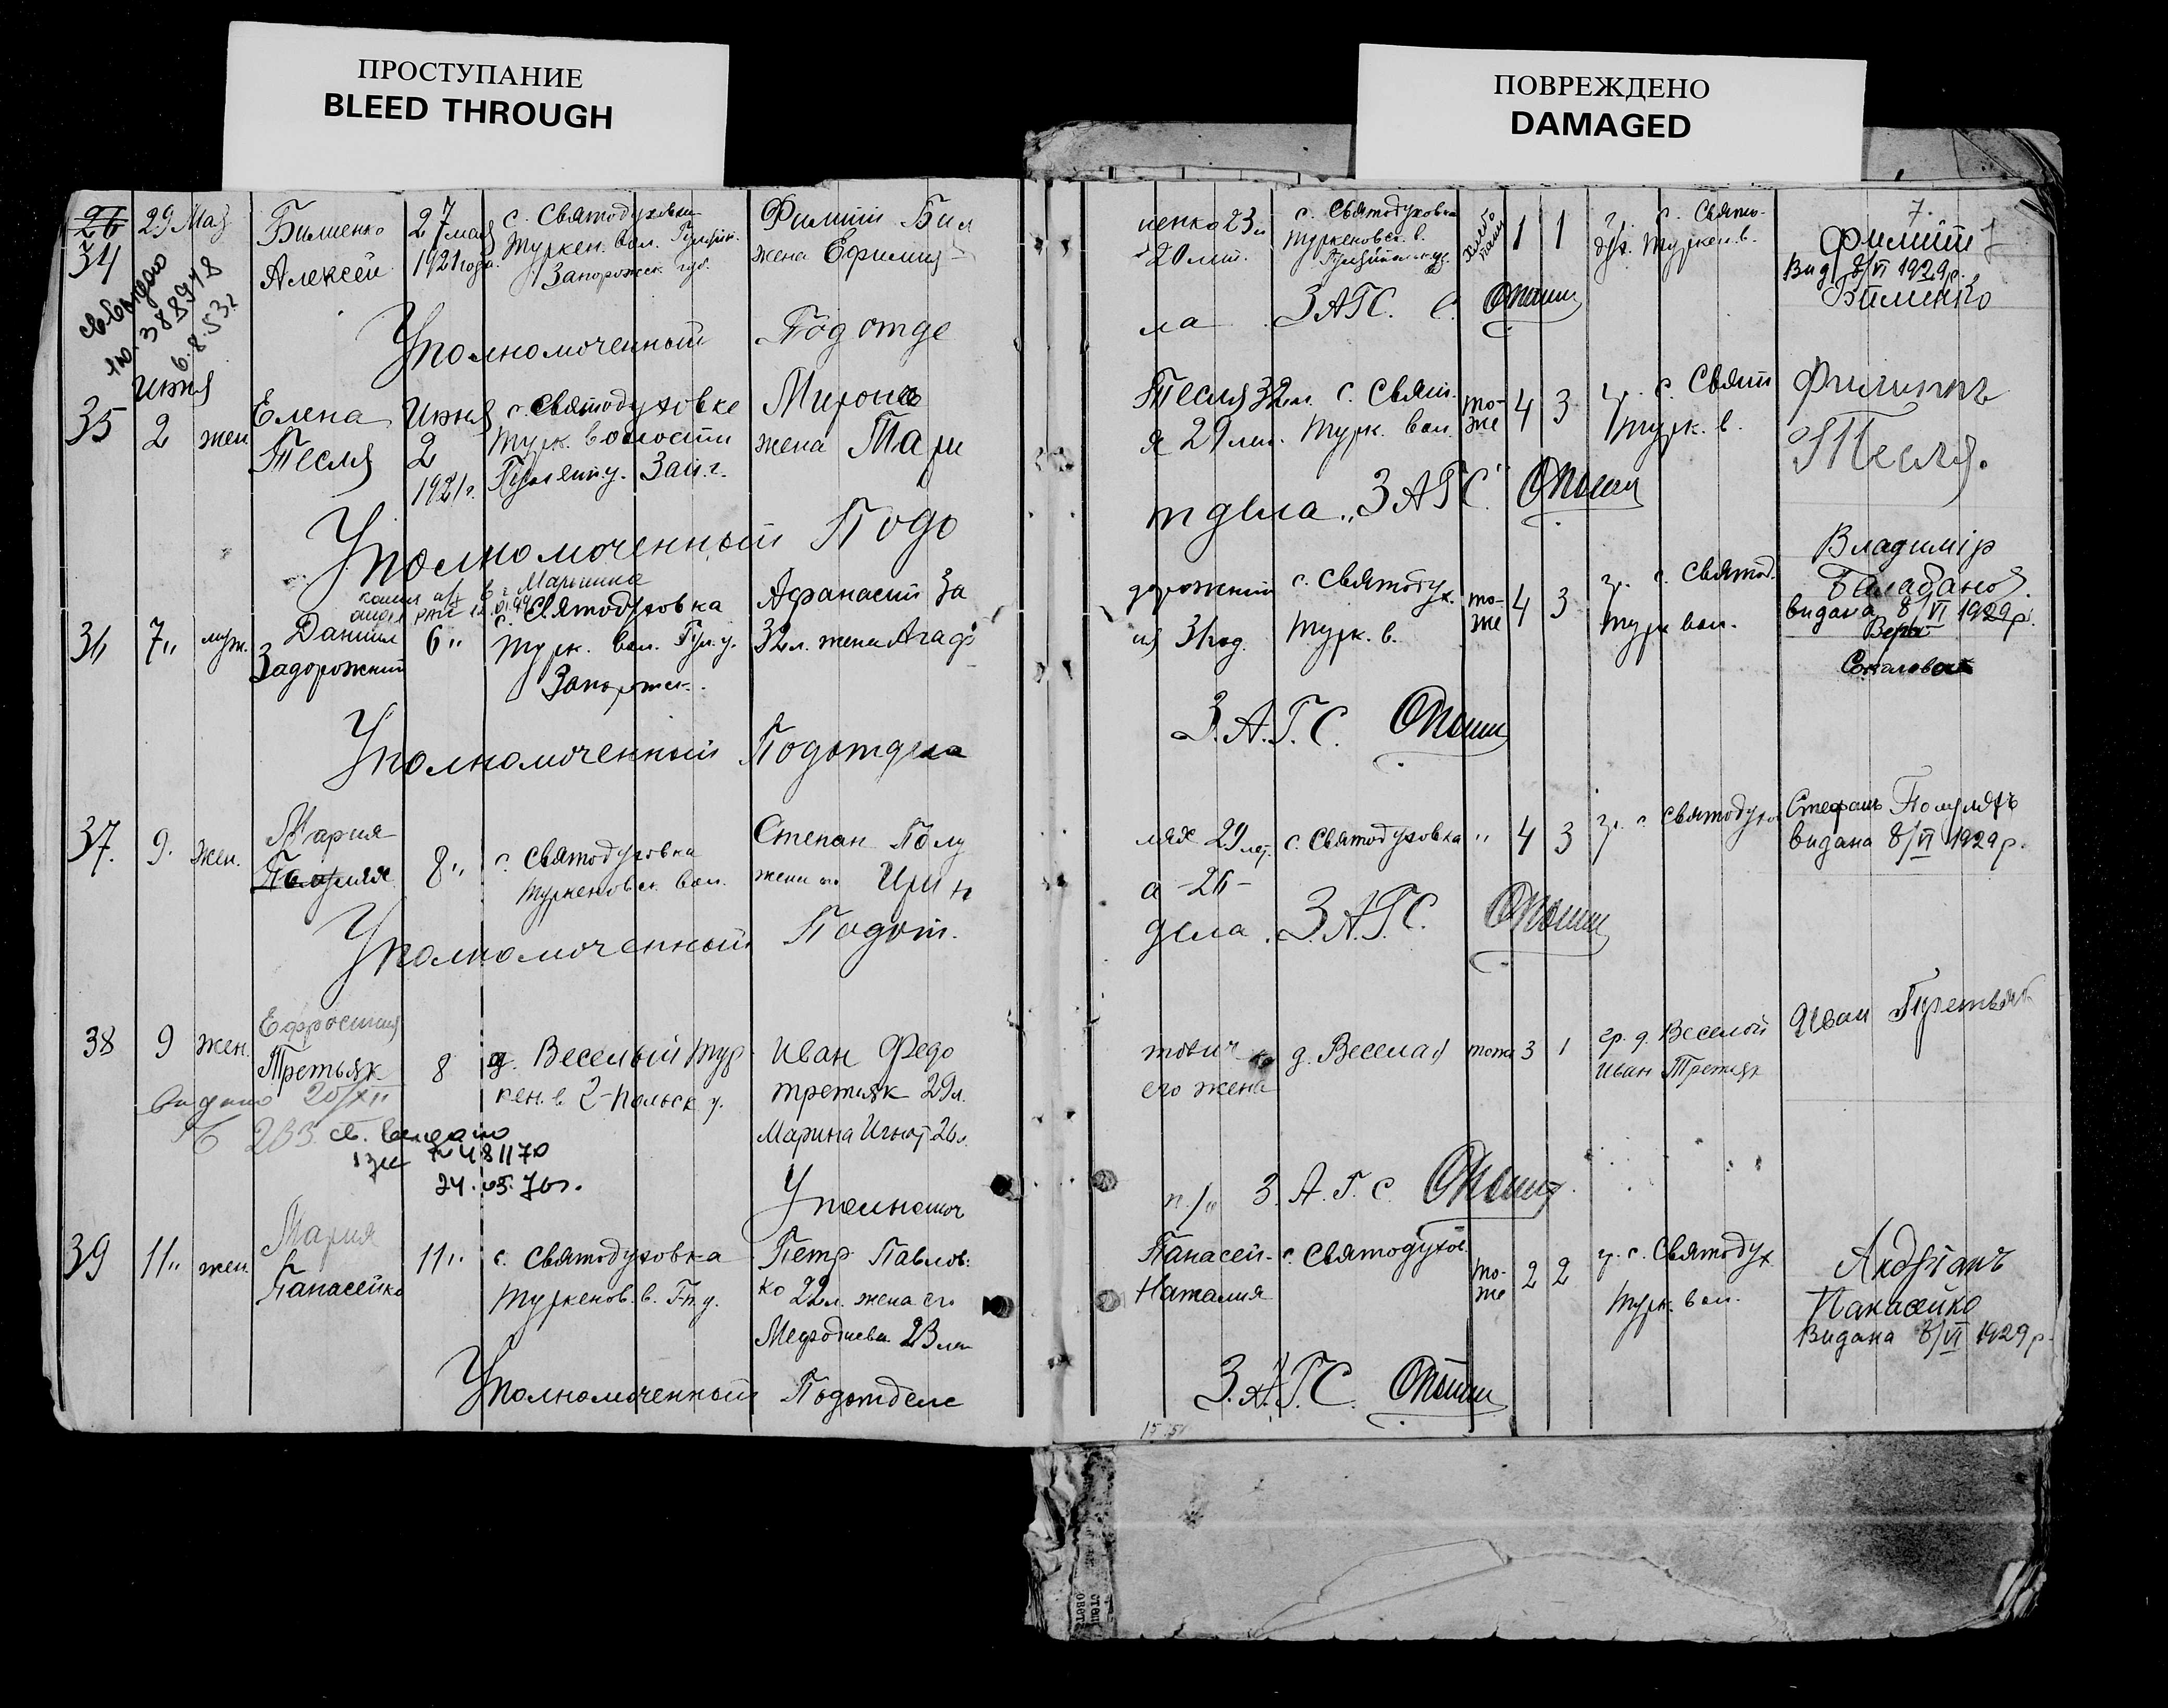 ПРОСТУПАНИЕ
BLEED THROUGH
ПОВРЕЖДЕНО
DAMAGED
7.
26
34
29 Мая
Билиенко
Алексей
27 мая
1921 года
с. Святодуховка
Туркен. вол. Гуляйп.
Запорожск. губ.
Филипп Бил
жена Ефимия
иенко 23 л
20 лет.
с. Святодуховка
Туркеновск. в.
Хлебо
паш
1 1
гр. с. Свято-
дух. Туркен. в.
Филипп
Вид 8/VI 1929 р.
Билиенко
св. видано
388978
6.8.53 г
Уполномоченный Под отде
ла ЗАГС. С.
35
Июня
2
жен
Елена
Тесля
Июня
2
1921 г.
с. Святодуховке
Турк. волости
Гуляйп у. Зап. г.
Мирон
жена Мари
Тесля 32 л.
я 29 лет.
с. Свят.
Турк. вол.
то-
же
4 3
гр. с. Свят
Турк. в.
Филиппъ
Тесля.
Уполномоченный Подо
тдела "ЗАГС"
36
7"
муж.
Даниил
Задорожний
6"
с. Святодуховка
Турк. вол. Гул. у.
Запорожск.
Афанасий За
32 л. жена Агаф
дорожний
ия 31 год.
с. Святодух.
Турк. в.
то-
же
4 3
гр. с. Святод.
Турк вол.
Владимір
Балабанов.
видана 8/VI 1929 р.
Вера
Соколова
Уполномоченный Подотдела
З.А.Г.С.
37.
9.
жен.
Мария
Полулях
8"
с. Святодуховка
Туркеновск. вол.
Степан Полу
жена его Ирин
лях 29 лет.
а -26-
с. Святодуховка
"
4 3
гр. с. Святодухов
Стефанъ Полуляхъ
видана 8/VI 1929 р.
Уполномоченный Подот.
дела З.А.Г.С.
38
9
жен.
Ефросиния
Третьяк
8
д. Веселый Тур
кен. в. Г-Польск у.
Иван Федо
третяк 29 л.
Марина Игнат 26 л.
тович
его жена
д. Веселая
тоже
3 1
гр. д. Веселой
Иван Третяк
Иван Третьяк
видано 20/XII
св. видано
№ 481170
24.05.70 г.
Уполномоч
п/о З.А.Г.С.
39
11"
жен.
Мария
Панасейко
11"
с. Святодуховка
Туркенов. в. Г-п. у.
Петр Павлов.
ко 22 л. жена его
Мефодиева 23 лет
Панасей-
Наталия
с. Святодухов.
то-
же
2 2
гр. с. Святодух
Турк. вол.
Андріанъ
Панасейко
Видана 8/VI 1929 р.
Уполномоченный Подотдела
З.А.Г.С.